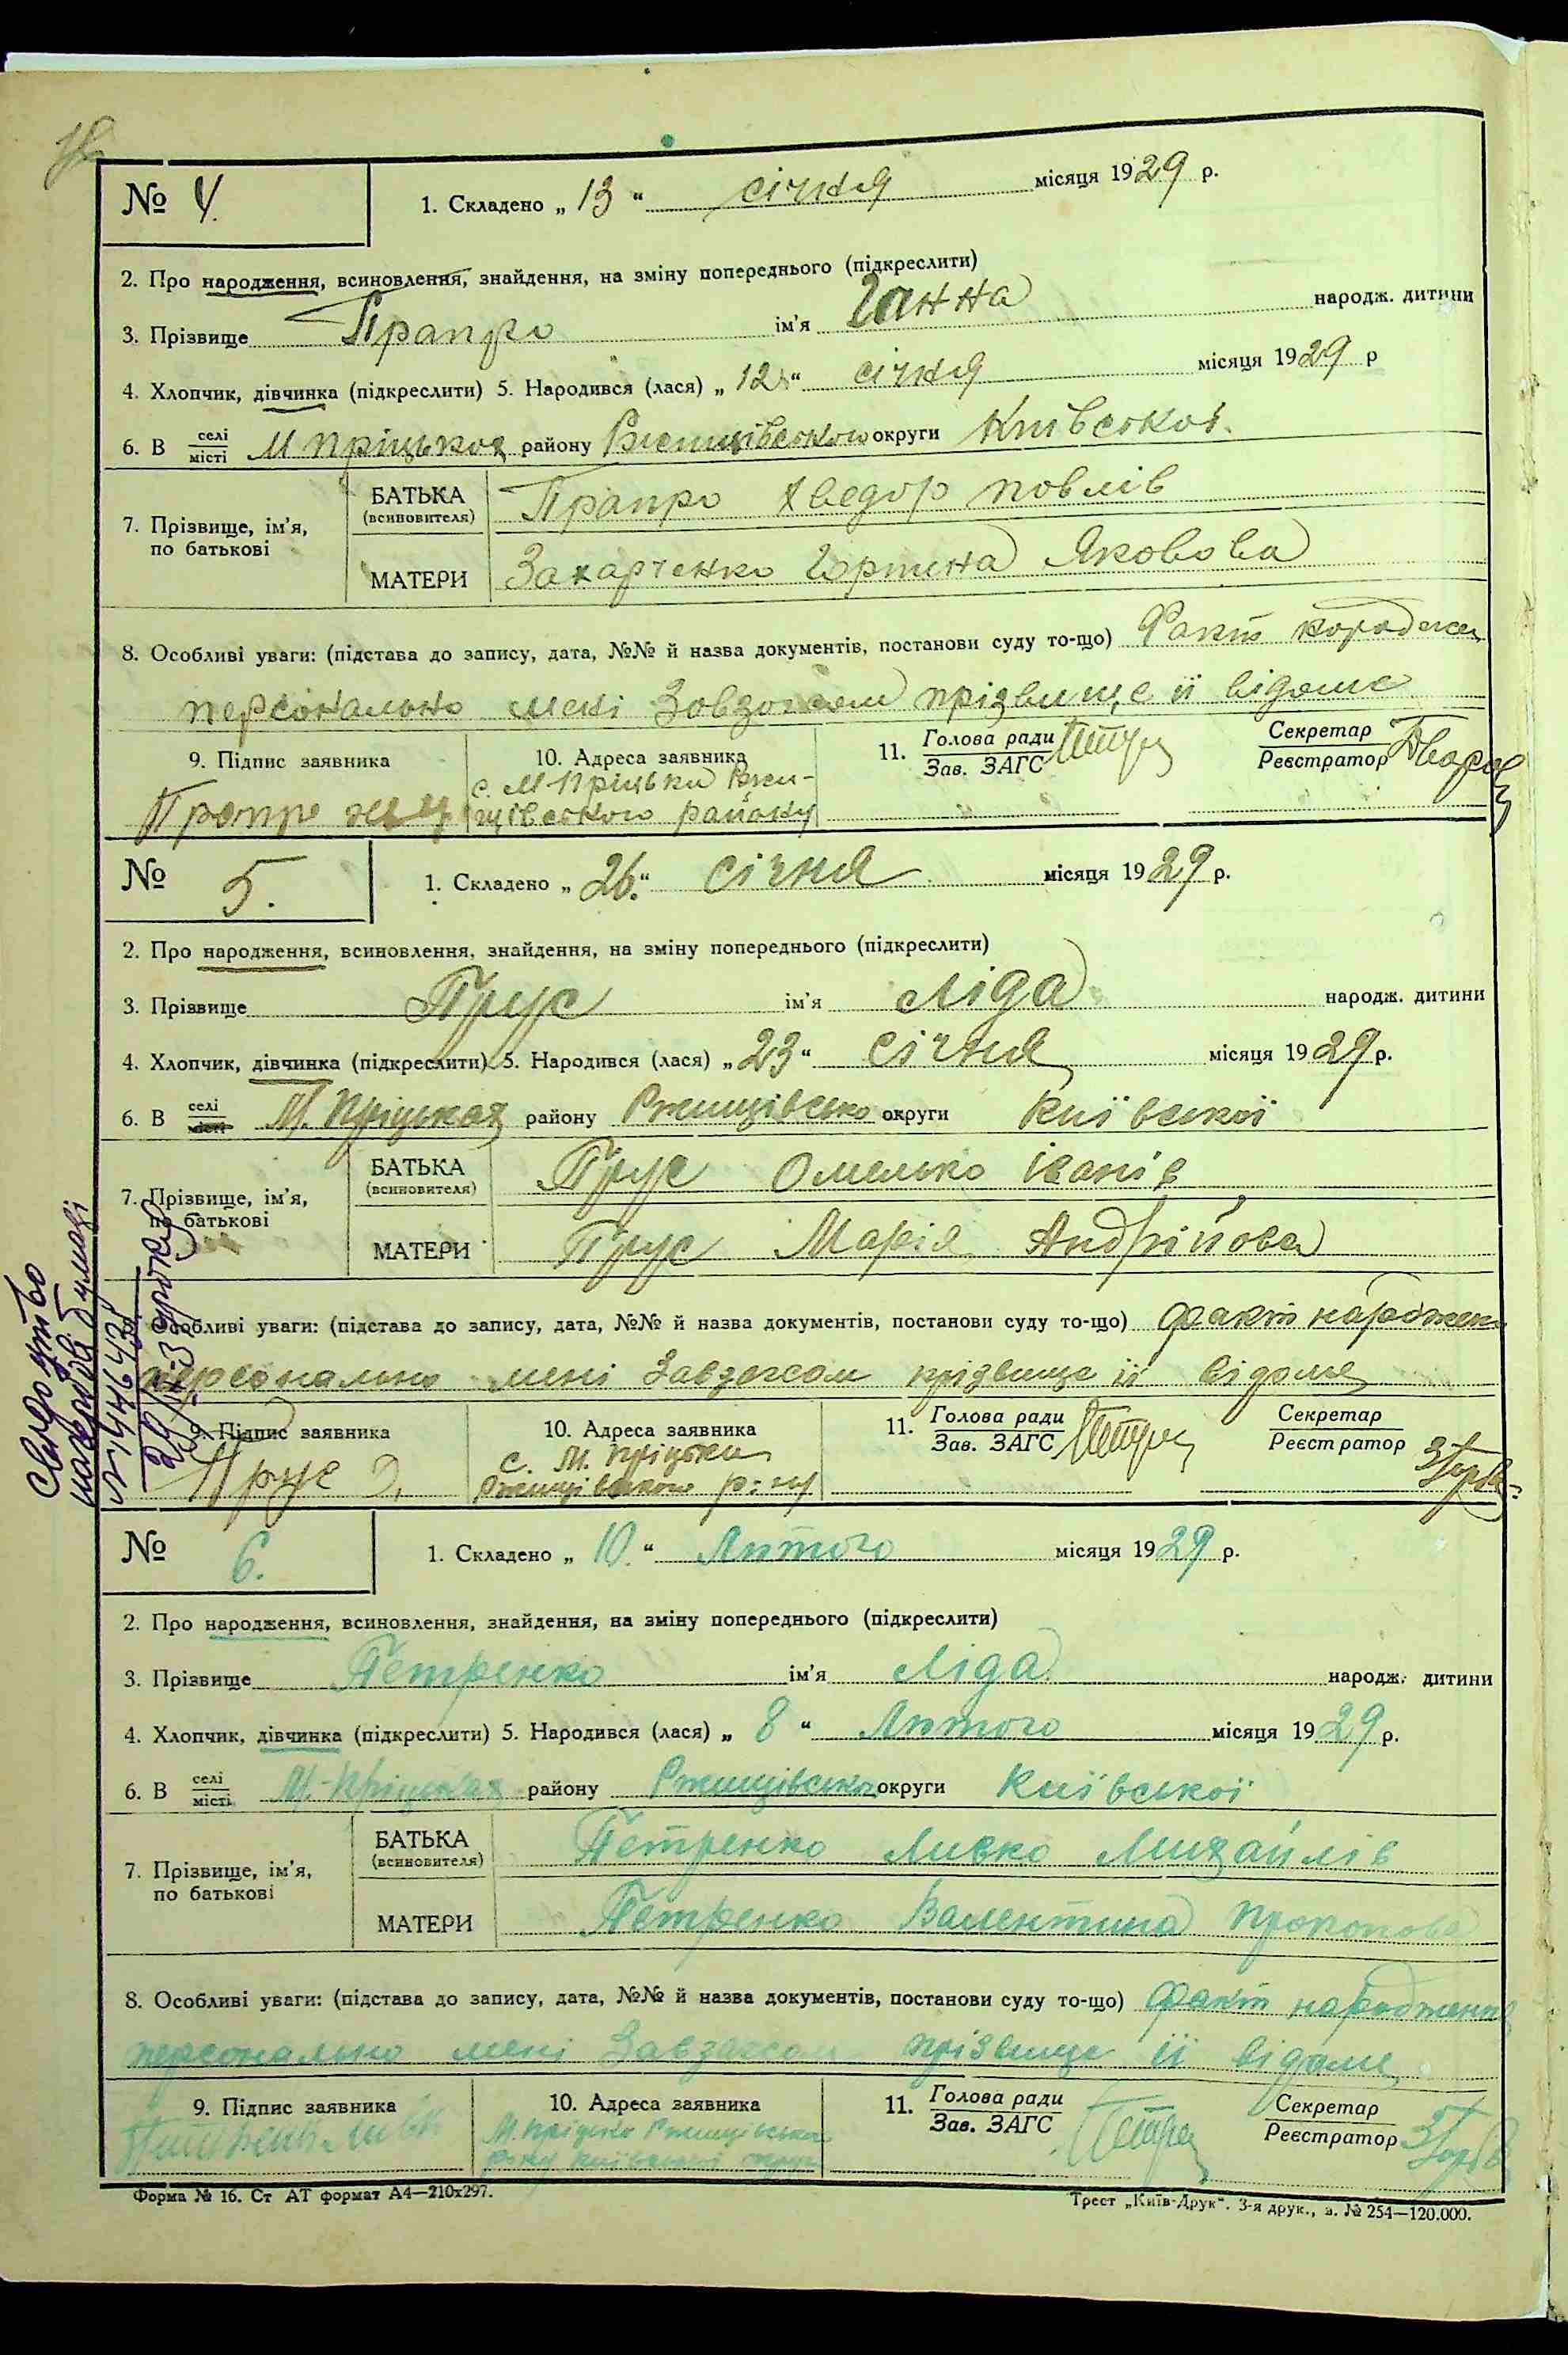 № 4.
1. Складено „ 13 “ січня місяця 1929 р.
2. Про народження, всиновлення, знайдення, на зміну попереднього (підкреслити)
3. Прізвище Прапро ім’я Ганна народж. дитини
4. Хлопчик, дівчинка (підкреслити) 5. Народився (лася) „ 12 “ січня місяця 1929 р
6. В селі місті М Пріцьках району Ржищівського округи Київської.
7. Прізвище, ім’я, по батькові
БАТЬКА (всиновителя) Прапро Хведор Повлів
МАТЕРИ Захарченко Горпина Яковова
8. Особливі уваги: (підстава до запису, дата, №№ й назва документів, постанови суду то-що) Факт народжен
персонально мені Завзагсом прізвище її відоме
9. Підпис заявника
10. Адреса заявника
11. Голова ради Зав. ЗАГС
Секретар Реєстратор
Прапро
с. М-Пріцьки Ржи-
щівського району
№ 5.
1. Складено „ 26. “ січня місяця 1929 р.
2. Про народження, всиновлення, знайдення, на зміну попереднього (підкреслити)
3. Прізвище Прус ім’я Ліда народж. дитини
4. Хлопчик, дівчинка (підкреслити) 5. Народився (лася) „ 23 “ січня місяця 1929 р.
6. В селі місті М. Пріцьках району Ржищівсько округи Київської
7. Прізвище, ім’я, по батькові
БАТЬКА (всиновителя) Прус Омелько Іванів
МАТЕРИ Прус Марія Андрійова
Особливі уваги: (підстава до запису, дата, №№ й назва документів, постанови суду то-що) Факт народжен
персонально мені Завзагсом прізвище її відоме
9. Підпис заявника
10. Адреса заявника
11. Голова ради Зав. ЗАГС
Секретар Реєстратор
Прус О,
с. М. Пріцьки
Ржищівського р-ну
Свидоцтво
№ 144643
№ 6.
1. Складено „ 10. “ Лютого місяця 1929 р.
2. Про народження, всиновлення, знайдення, на зміну попереднього (підкреслити)
3. Прізвище Петренко ім’я Ліда народж. дитини
4. Хлопчик, дівчинка (підкреслити) 5. Народився (лася) „ 8 “ Лютого місяця 1929 р.
6. В селі місті М.-Пріцьках району Ржищівсько округи Київської
7. Прізвище, ім’я, по батькові
БАТЬКА (всиновителя) Петренко Мивко Михайлів
МАТЕРИ Петренко Валентина Прокопова
8. Особливі уваги: (підстава до запису, дата, №№ й назва документів, постанови суду то-що) Факт народження
персонально мені Завзагсом прізвище її відоме
9. Підпис заявника
10. Адреса заявника
11. Голова ради Зав. ЗАГС
Секретар Реєстратор
М. Пріцьки Ржищівсько
р-ну Київської округи
Форма № 16. Ст АТ формат А4—210х297.
Трест „Київ-Друк“. 3-я друк., з. № 254—120.000.